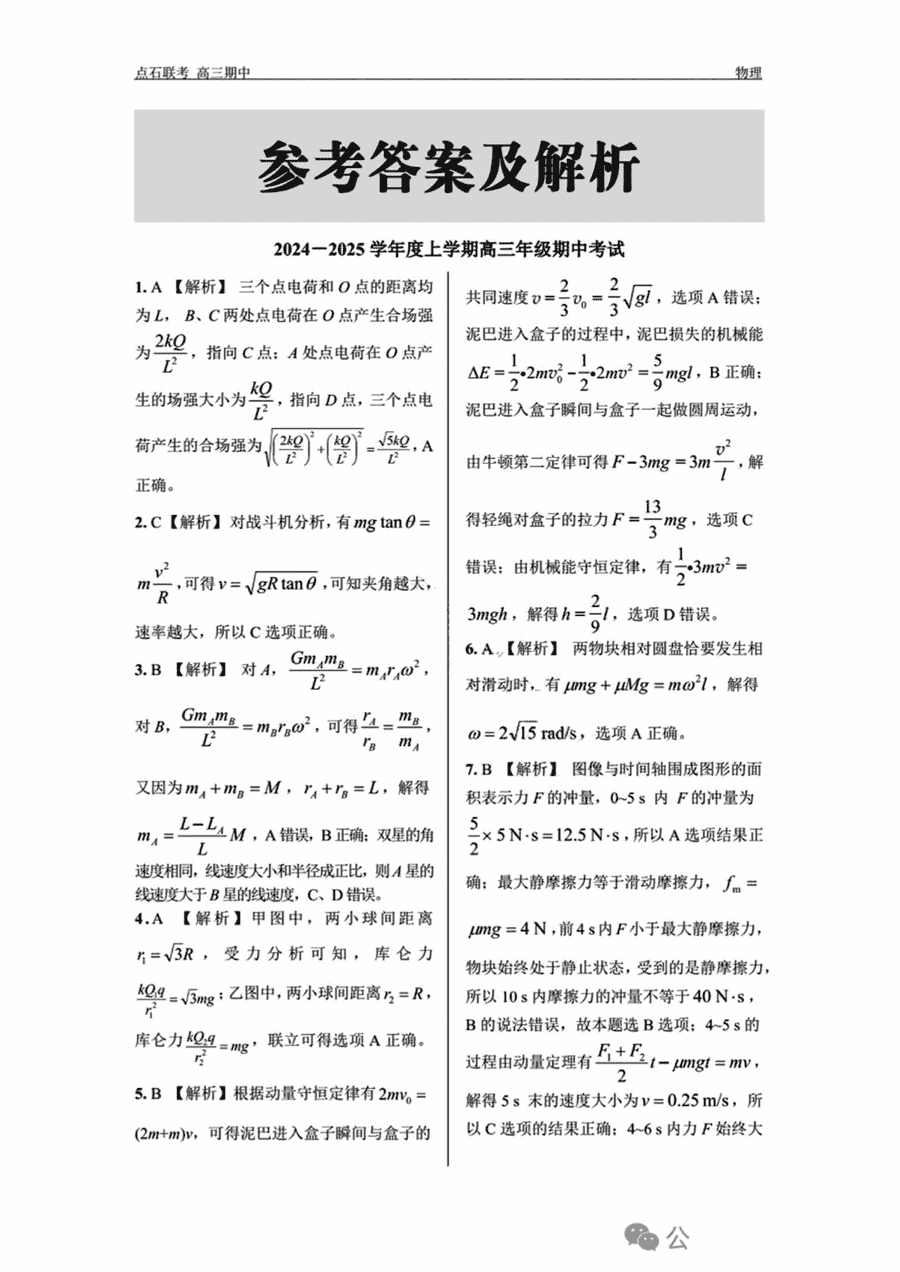 点石联考 高三期中 物理
参考答案及解析
2024－2025 学年度上学期高三年级期中考试
1. A 【解析】 三个点电荷和 O 点的距离均
为 L， B、C 两处点电荷在 O 点产生合场强
为 2kQ/L²，指向 C 点；A 处点电荷在 O 点产
生的场强大小为 kQ/L²，指向 D 点，三个点电
荷产生的合场强为 √((2kQ/L²)²+(kQ/L²)²) = √5kQ/L²，A
正确。
2. C【解析】对战斗机分析，有 mg tan θ =
m v²/R，可得 v = √(gR tan θ)，可知夹角越大，
速率越大，所以 C 选项正确。
3. B 【解析】 对 A， Gm_Am_B/L² = m_Ar_Aω²，
对 B，Gm_Am_B/L² = m_Br_Bω²，可得 r_A/r_B = m_B/m_A，
又因为 m_A + m_B = M， r_A + r_B = L，解得
m_A = (L−L_A)/L M，A 错误，B 正确；双星的角
速度相同，线速度大小和半径成正比，则 A 星的
线速度大于 B 星的线速度，C、D 错误。
4. A 【解析】甲图中，两小球间距离
r₁ = √3R，受力分析可知，库仑力
kQ₁q/r₁² = √3mg；乙图中，两小球间距离 r₂ = R，
库仑力 kQ₂q/r₂² = mg，联立可得选项 A 正确。
5. B 【解析】根据动量守恒定律有 2mv₀ =
(2m+m)v，可得泥巴进入盒子瞬间与盒子的
共同速度 v = 2/3 v₀ = 2/3 √gl，选项 A 错误；
泥巴进入盒子的过程中，泥巴损失的机械能
ΔE = 1/2•2mv₀² − 1/2•2mv² = 5/9 mgl，B 正确；
泥巴进入盒子瞬间与盒子一起做圆周运动，
由牛顿第二定律可得 F − 3mg = 3m v²/l，解
得轻绳对盒子的拉力 F = 13/3 mg，选项 C
错误；由机械能守恒定律，有 1/2•3mv² =
3mgh，解得 h = 2/9 l，选项 D 错误。
6. A 【解析】 两物块相对圆盘恰要发生相
对滑动时，有 μmg + μMg = mω²l，解得
ω = 2√15 rad/s，选项 A 正确。
7. B 【解析】 图像与时间轴围成图形的面
积表示力 F 的冲量，0~5 s 内 F 的冲量为
5/2 × 5 N·s = 12.5 N·s，所以 A 选项结果正
确；最大静摩擦力等于滑动摩擦力， f_m =
μmg = 4 N，前 4 s 内 F 小于最大静摩擦力，
物块始终处于静止状态，受到的是静摩擦力，
所以 10 s 内摩擦力的冲量不等于 40 N·s，
B 的说法错误，故本题选 B 选项；4~5 s 的
过程由动量定理有 (F₁ + F₂)/2 t − μmgt = mv，
解得 5 s 末的速度大小为 v = 0.25 m/s，所
以 C 选项的结果正确；4~6 s 内力 F 始终大
公